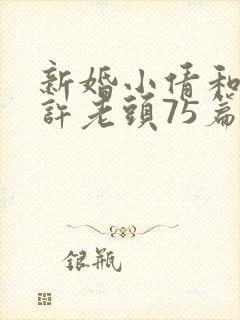 新婚小倩和
許老頭75篇
銀瓶